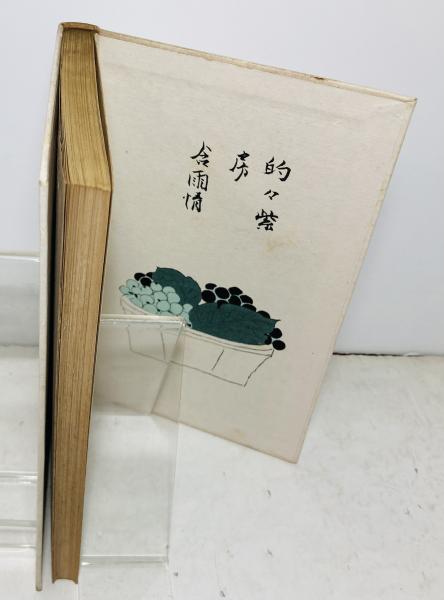 的々紫
房
含雨情